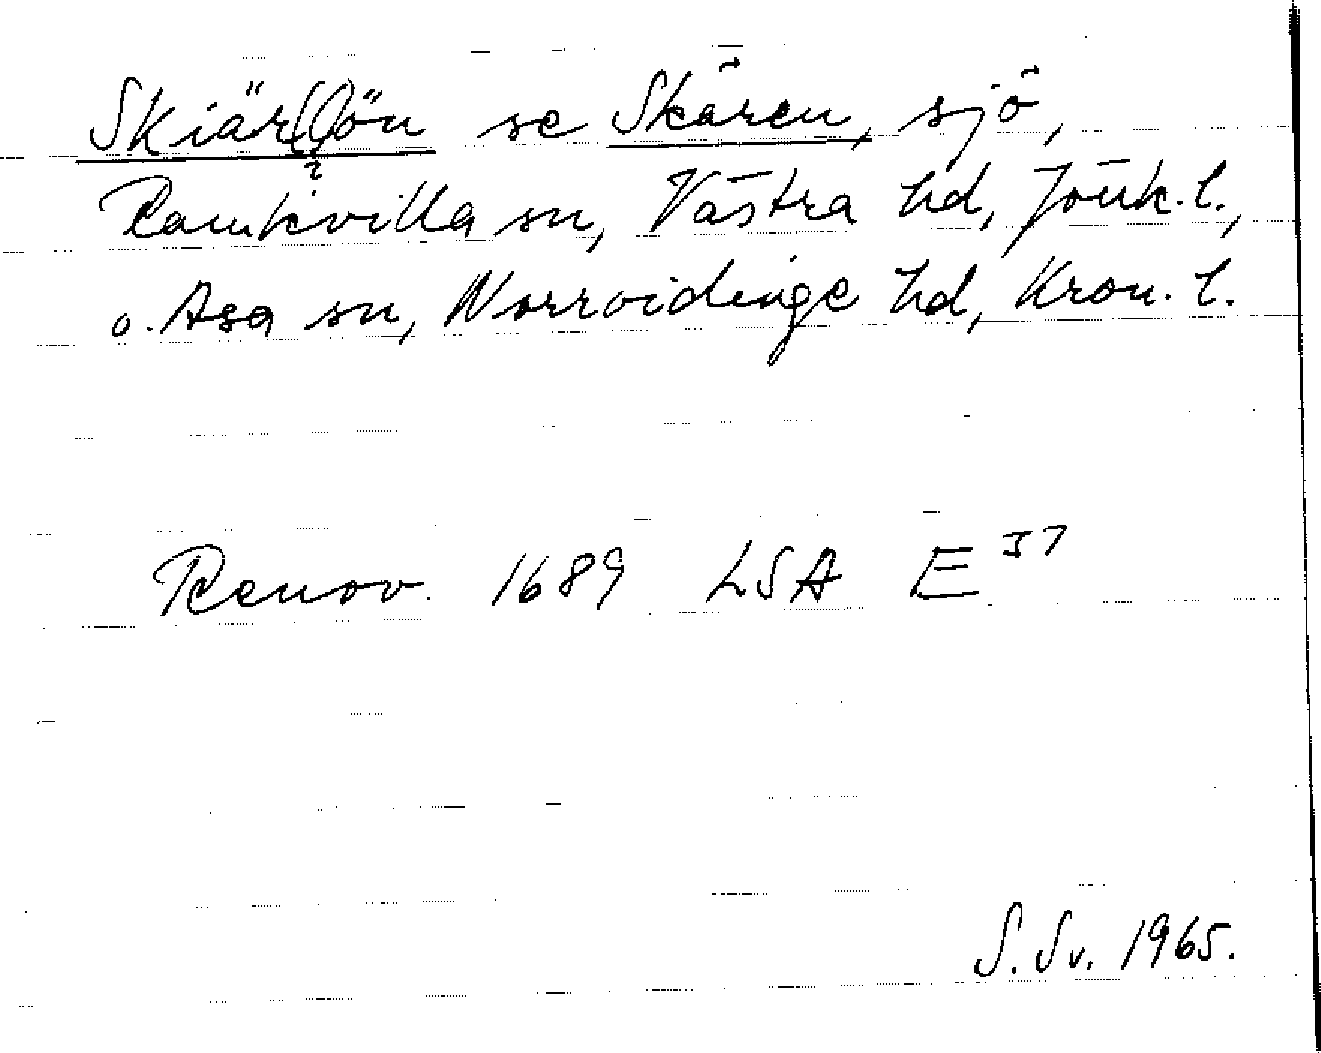 Skiär(l)ön se Skären, sjö,
?
Ramkvilla sn, Västra hd, Jönk. l.,
o. Asa sn, Norrvidinge hd, Kron. l.
Renov. 1689 LSA E 37
S. Sv. 1965.